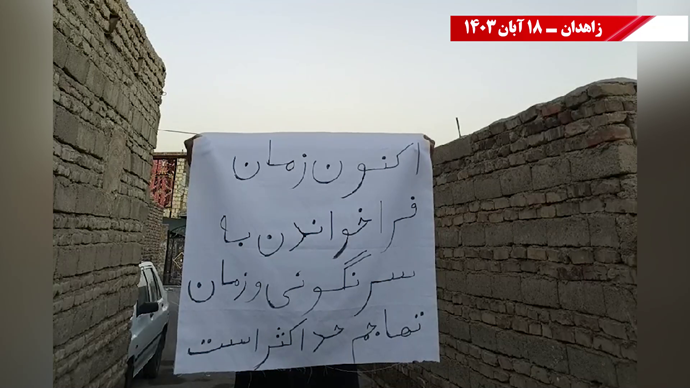 زاهدان ــ ۱۸ آبان ۱۴۰۳
اکنون زمان
فراخواندن به
سرنگونی و زمان
تهاجم حداکثر است